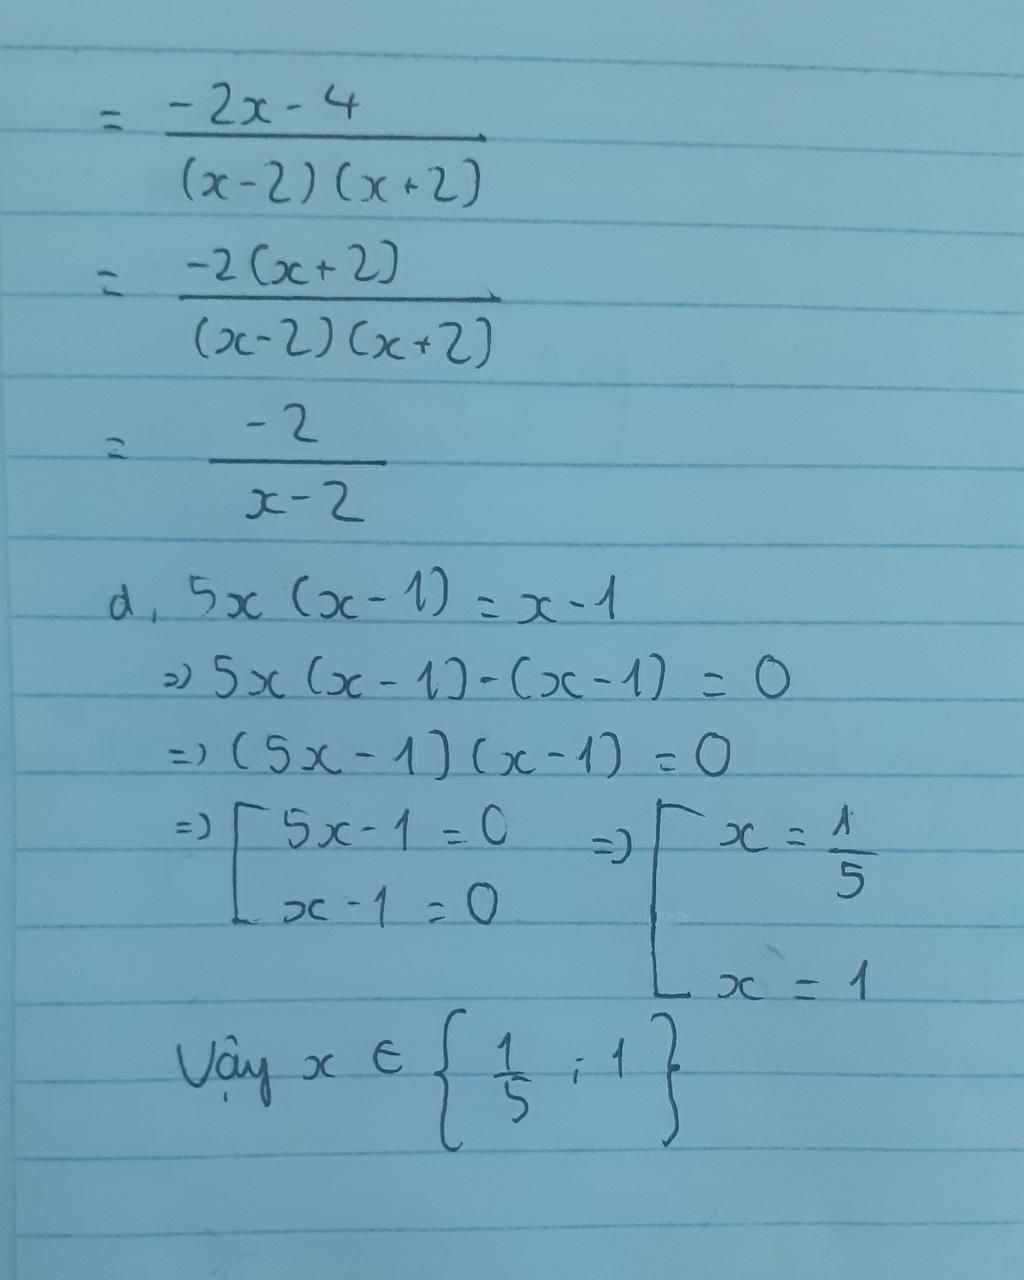 = \frac{-2x-4}{(x-2)(x+2)}
= \frac{-2(x+2)}{(x-2)(x+2)}
= \frac{-2}{x-2}
d, 5x(x-1) = x-1
=> 5x(x-1)-(x-1) = 0
=> (5x-1)(x-1) = 0
=> [ 5x-1 = 0 => [ x = \frac{1}{5}
x-1 = 0
x = 1
Vậy x ∈ { \frac{1}{5} ; 1 }